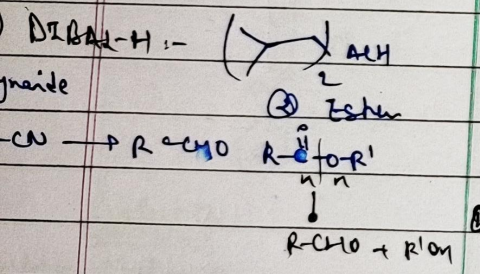 ) DIBAL-H :- ( )₂ AlH
yneide
② Ester
-CN → R-CHO
O
R-C-O-R'
H H
R-CHO + R'OH